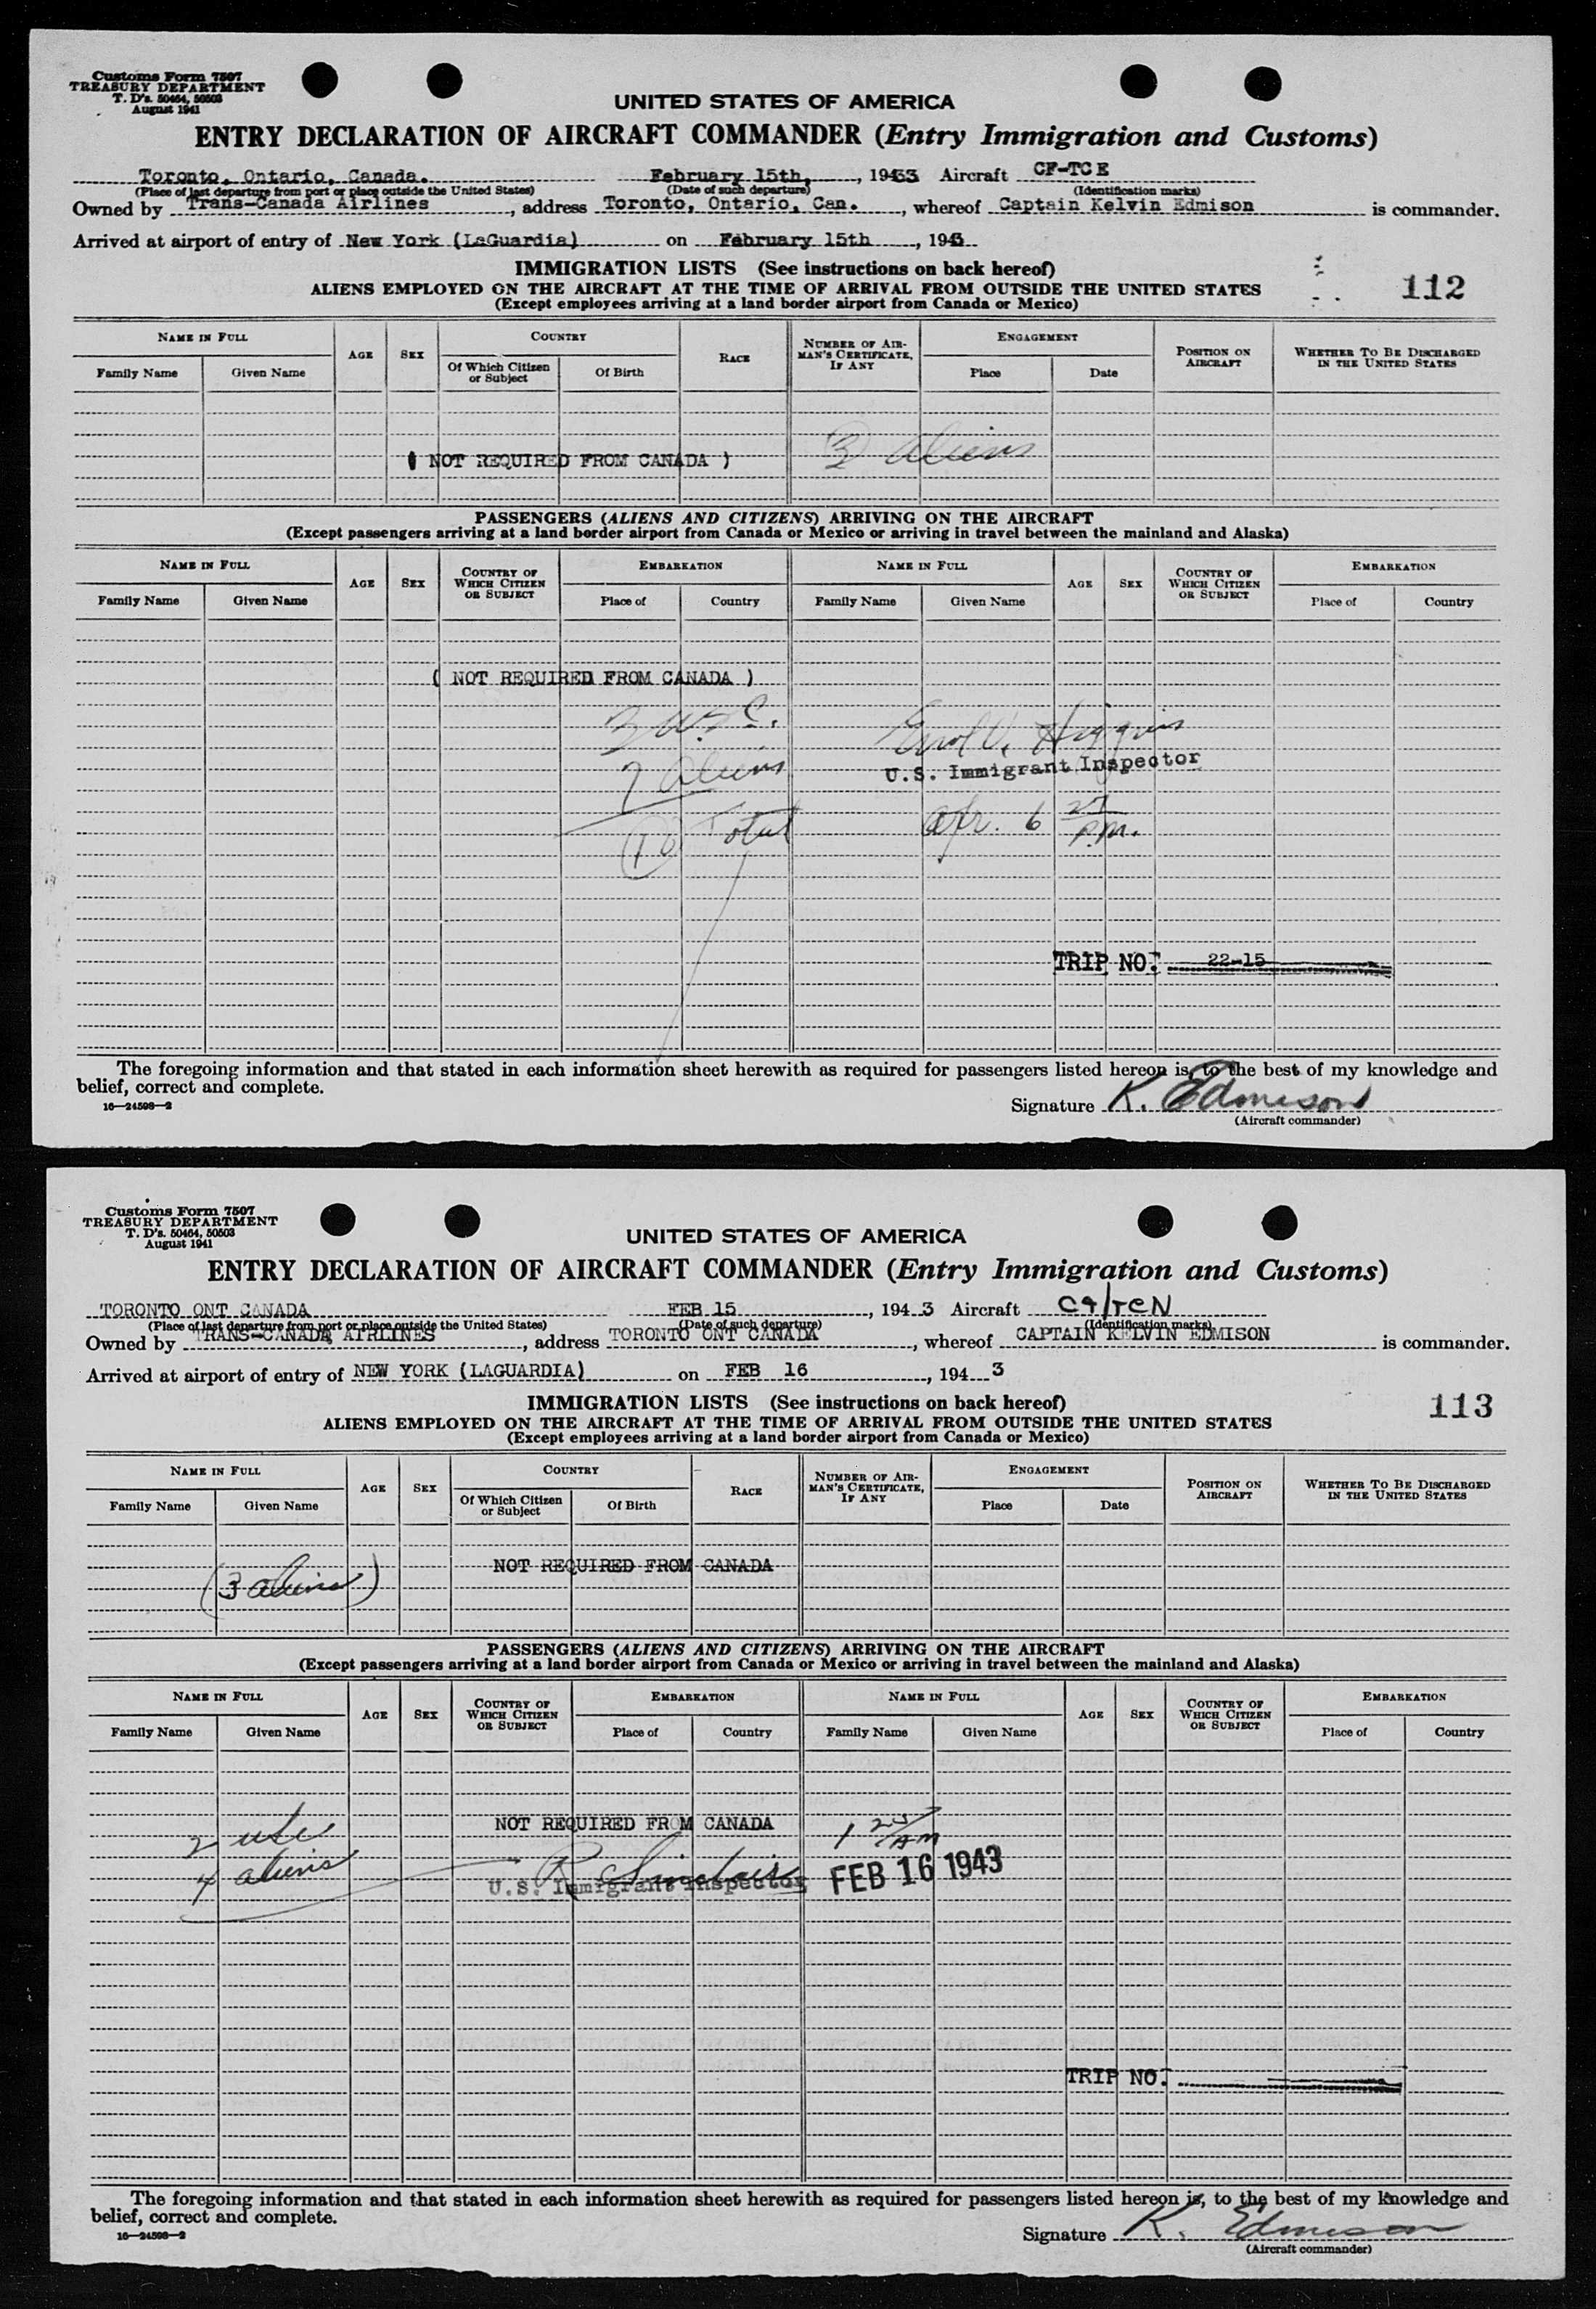 Customs Form 7507
TREASURY DEPARTMENT
T. D's. 50464, 50503
August 1941
UNITED STATES OF AMERICA
ENTRY DECLARATION OF AIRCRAFT COMMANDER (Entry Immigration and Customs)
Toronto, Ontario, Canada. February 15th, , 1943 Aircraft CF-TCE
(Place of last departure from port or place outside the United States) (Date of such departure) (Identification marks)
Owned by Trans-Canada Airlines , address Toronto, Ontario, Can. , whereof Captain Kelvin Edmison is commander.
Arrived at airport of entry of New York (LaGuardia) on February 15th , 1943
IMMIGRATION LISTS (See instructions on back hereof)
112
ALIENS EMPLOYED ON THE AIRCRAFT AT THE TIME OF ARRIVAL FROM OUTSIDE THE UNITED STATES
(Except employees arriving at a land border airport from Canada or Mexico)
NAME IN FULL AGE SEX COUNTRY RACE NUMBER OF AIRMAN'S CERTIFICATE, IF ANY ENGAGEMENT POSITION ON AIRCRAFT WHETHER TO BE DISCHARGED IN THE UNITED STATES
Family Name Given Name Of Which Citizen or Subject Of Birth Place Date
3 aliens
( NOT REQUIRED FROM CANADA )
PASSENGERS (ALIENS AND CITIZENS) ARRIVING ON THE AIRCRAFT
(Except passengers arriving at a land border airport from Canada or Mexico or arriving in travel between the mainland and Alaska)
NAME IN FULL AGE SEX COUNTRY OF WHICH CITIZEN OR SUBJECT EMBARKATION NAME IN FULL AGE SEX COUNTRY OF WHICH CITIZEN OR SUBJECT EMBARKATION
Family Name Given Name Place of Country Family Name Given Name Place of Country
( NOT REQUIRED FROM CANADA )
3 U.S.C. Errol V. Higgins
7 aliens U.S. Immigrant Inspector
10 Total 6 27 P.M.
TRIP NO. 22-15
The foregoing information and that stated in each information sheet herewith as required for passengers listed hereon is, to the best of my knowledge and
belief, correct and complete.
16—24598-2
Signature K. Edmison
(Aircraft commander)
Customs Form 7507
TREASURY DEPARTMENT
T. D's. 50464, 50503
August 1941
UNITED STATES OF AMERICA
ENTRY DECLARATION OF AIRCRAFT COMMANDER (Entry Immigration and Customs)
TORONTO ONT CANADA FEB 15 , 1943 Aircraft CF/TCN
(Place of last departure from port or place outside the United States) (Date of such departure) (Identification marks)
Owned by TRANS-CANADA AIRLINES , address TORONTO ONT CANADA , whereof CAPTAIN KELVIN EDMISON is commander.
Arrived at airport of entry of NEW YORK (LAGUARDIA) on FEB 16 , 1943
IMMIGRATION LISTS (See instructions on back hereof)
113
ALIENS EMPLOYED ON THE AIRCRAFT AT THE TIME OF ARRIVAL FROM OUTSIDE THE UNITED STATES
(Except employees arriving at a land border airport from Canada or Mexico)
NAME IN FULL AGE SEX COUNTRY RACE NUMBER OF AIRMAN'S CERTIFICATE, IF ANY ENGAGEMENT POSITION ON AIRCRAFT WHETHER TO BE DISCHARGED IN THE UNITED STATES
Family Name Given Name Of Which Citizen or Subject Of Birth Place Date
NOT REQUIRED FROM CANADA
(3 aliens)
PASSENGERS (ALIENS AND CITIZENS) ARRIVING ON THE AIRCRAFT
(Except passengers arriving at a land border airport from Canada or Mexico or arriving in travel between the mainland and Alaska)
NAME IN FULL AGE SEX COUNTRY OF WHICH CITIZEN OR SUBJECT EMBARKATION NAME IN FULL AGE SEX COUNTRY OF WHICH CITIZEN OR SUBJECT EMBARKATION
Family Name Given Name Place of Country Family Name Given Name Place of Country
NOT REQUIRED FROM CANADA
2 USC 1 25 AM
4 aliens R Sinclair FEB 16 1943
U.S. Immigrant Inspector
TRIP NO.
The foregoing information and that stated in each information sheet herewith as required for passengers listed hereon is, to the best of my knowledge and
belief, correct and complete.
16—24598-2
Signature K. Edmison
(Aircraft commander)